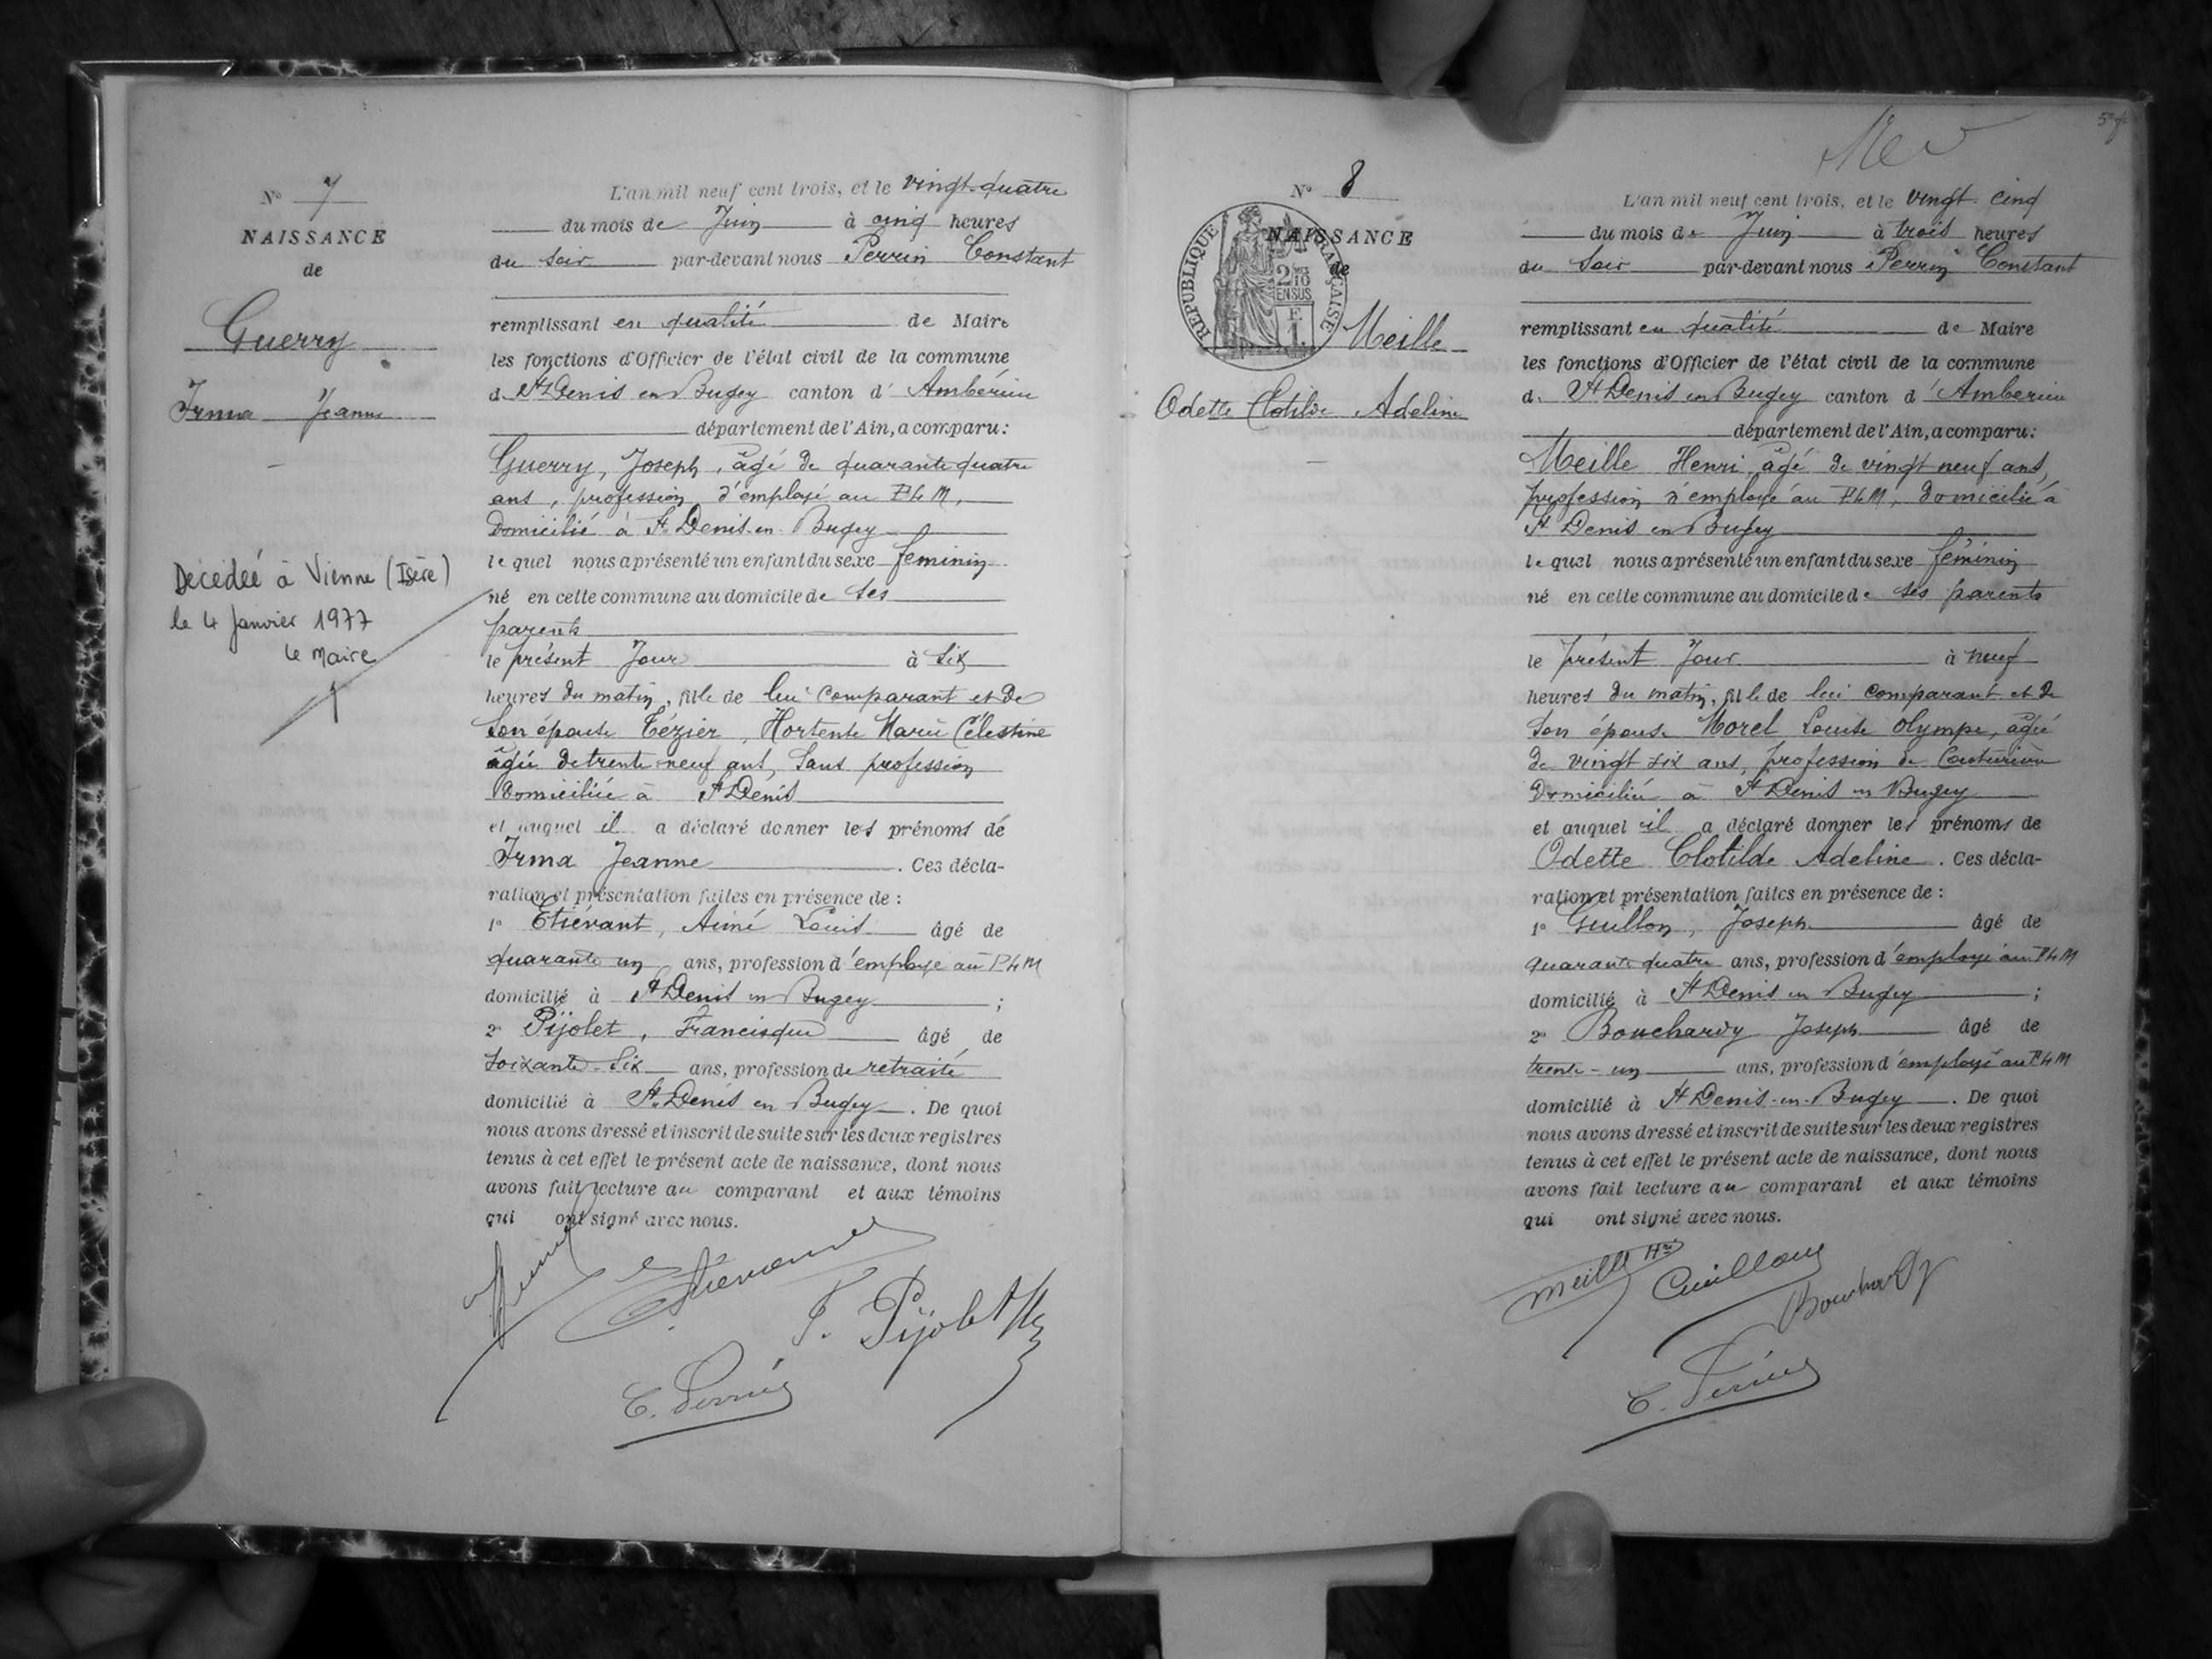 N° 7
NAISSANCE
de
Guerry
Irma Jeanne
Décédée à Vienne (Isère)
le 4 Janvier 1977
Le Maire
L'an mil neuf cent trois, et le vingt-quatre
du mois de Juin à cinq heures
du soir par-devant nous Perrin Constant
remplissant en qualité de Maire
les fonctions d'Officier de l'état civil de la commune
d. St Denis en Bugey canton d' Ambérieu
département de l'Ain, a comparu:
Guerry, Joseph, âgé de quarante quatre
ans, profession d'employé au PLM,
domicilié à St Denis-en-Bugey
lequel nous a présenté un enfant du sexe féminin
né en cette commune au domicile de ses
parents
le présent Jour à six
heures du matin, fille de lui comparant et de
son épouse Tézier, Hortense Marie Célestine
âgée de trente-neuf ans, sans profession
domiciliée à St Denis
et auquel il a déclaré donner les prénoms de
Irma Jeanne. Ces décla-
ration et présentation faites en présence de :
1° Etiévant, Aimé Louis âgé de
quarante un ans, profession d'employé au PLM
domicilié à St Denis en Bugey ;
2° Pijolet, Francisque âgé de
soixante-six ans, profession de retraité
domicilié à St Denis en Bugey. De quoi
nous avons dressé et inscrit de suite sur les deux registres
tenus à cet effet le présent acte de naissance, dont nous
avons fait lecture au comparant et aux témoins
qui ont signé avec nous.
F. Pijolet
C. Perrin
N° 8
RÉPUBLIQUE FRANÇAISE
NAISSANCE
de
2/10 EN SUS
Meille
Odette Clotilde Adeline
L'an mil neuf cent trois, et le vingt cinq
du mois de Juin à trois heures
du soir par-devant nous Perrin Constant
remplissant en qualité de Maire
les fonctions d'Officier de l'état civil de la commune
d. St Denis en Bugey canton d' Ambérieu
département de l'Ain, a comparu:
Meille Henri, âgé de vingt neuf ans,
profession d'employé au PLM, domicilié à
St Denis en Bugey
lequel nous a présenté un enfant du sexe féminin
né en cette commune au domicile de ses parents
le présent Jour à neuf
heures du matin, fille de lui comparant et de
son épouse Morel Louise Olympe, âgée
de vingt six ans, profession de Couturière
domiciliée à St Denis en Bugey
et auquel il a déclaré donner les prénoms de
Odette Clotilde Adeline. Ces décla-
ration et présentation faites en présence de :
1° Guillon, Joseph âgé de
quarante quatre ans, profession d'employé au PLM
domicilié à St Denis en Bugey ;
2° Bouchardy Joseph âgé de
trente-un ans, profession d'employé au PLM
domicilié à St Denis-en-Bugey. De quoi
nous avons dressé et inscrit de suite sur les deux registres
tenus à cet effet le présent acte de naissance, dont nous
avons fait lecture au comparant et aux témoins
qui ont signé avec nous.
Meille Hri
Guillon
Bouchardy
C. Perrin